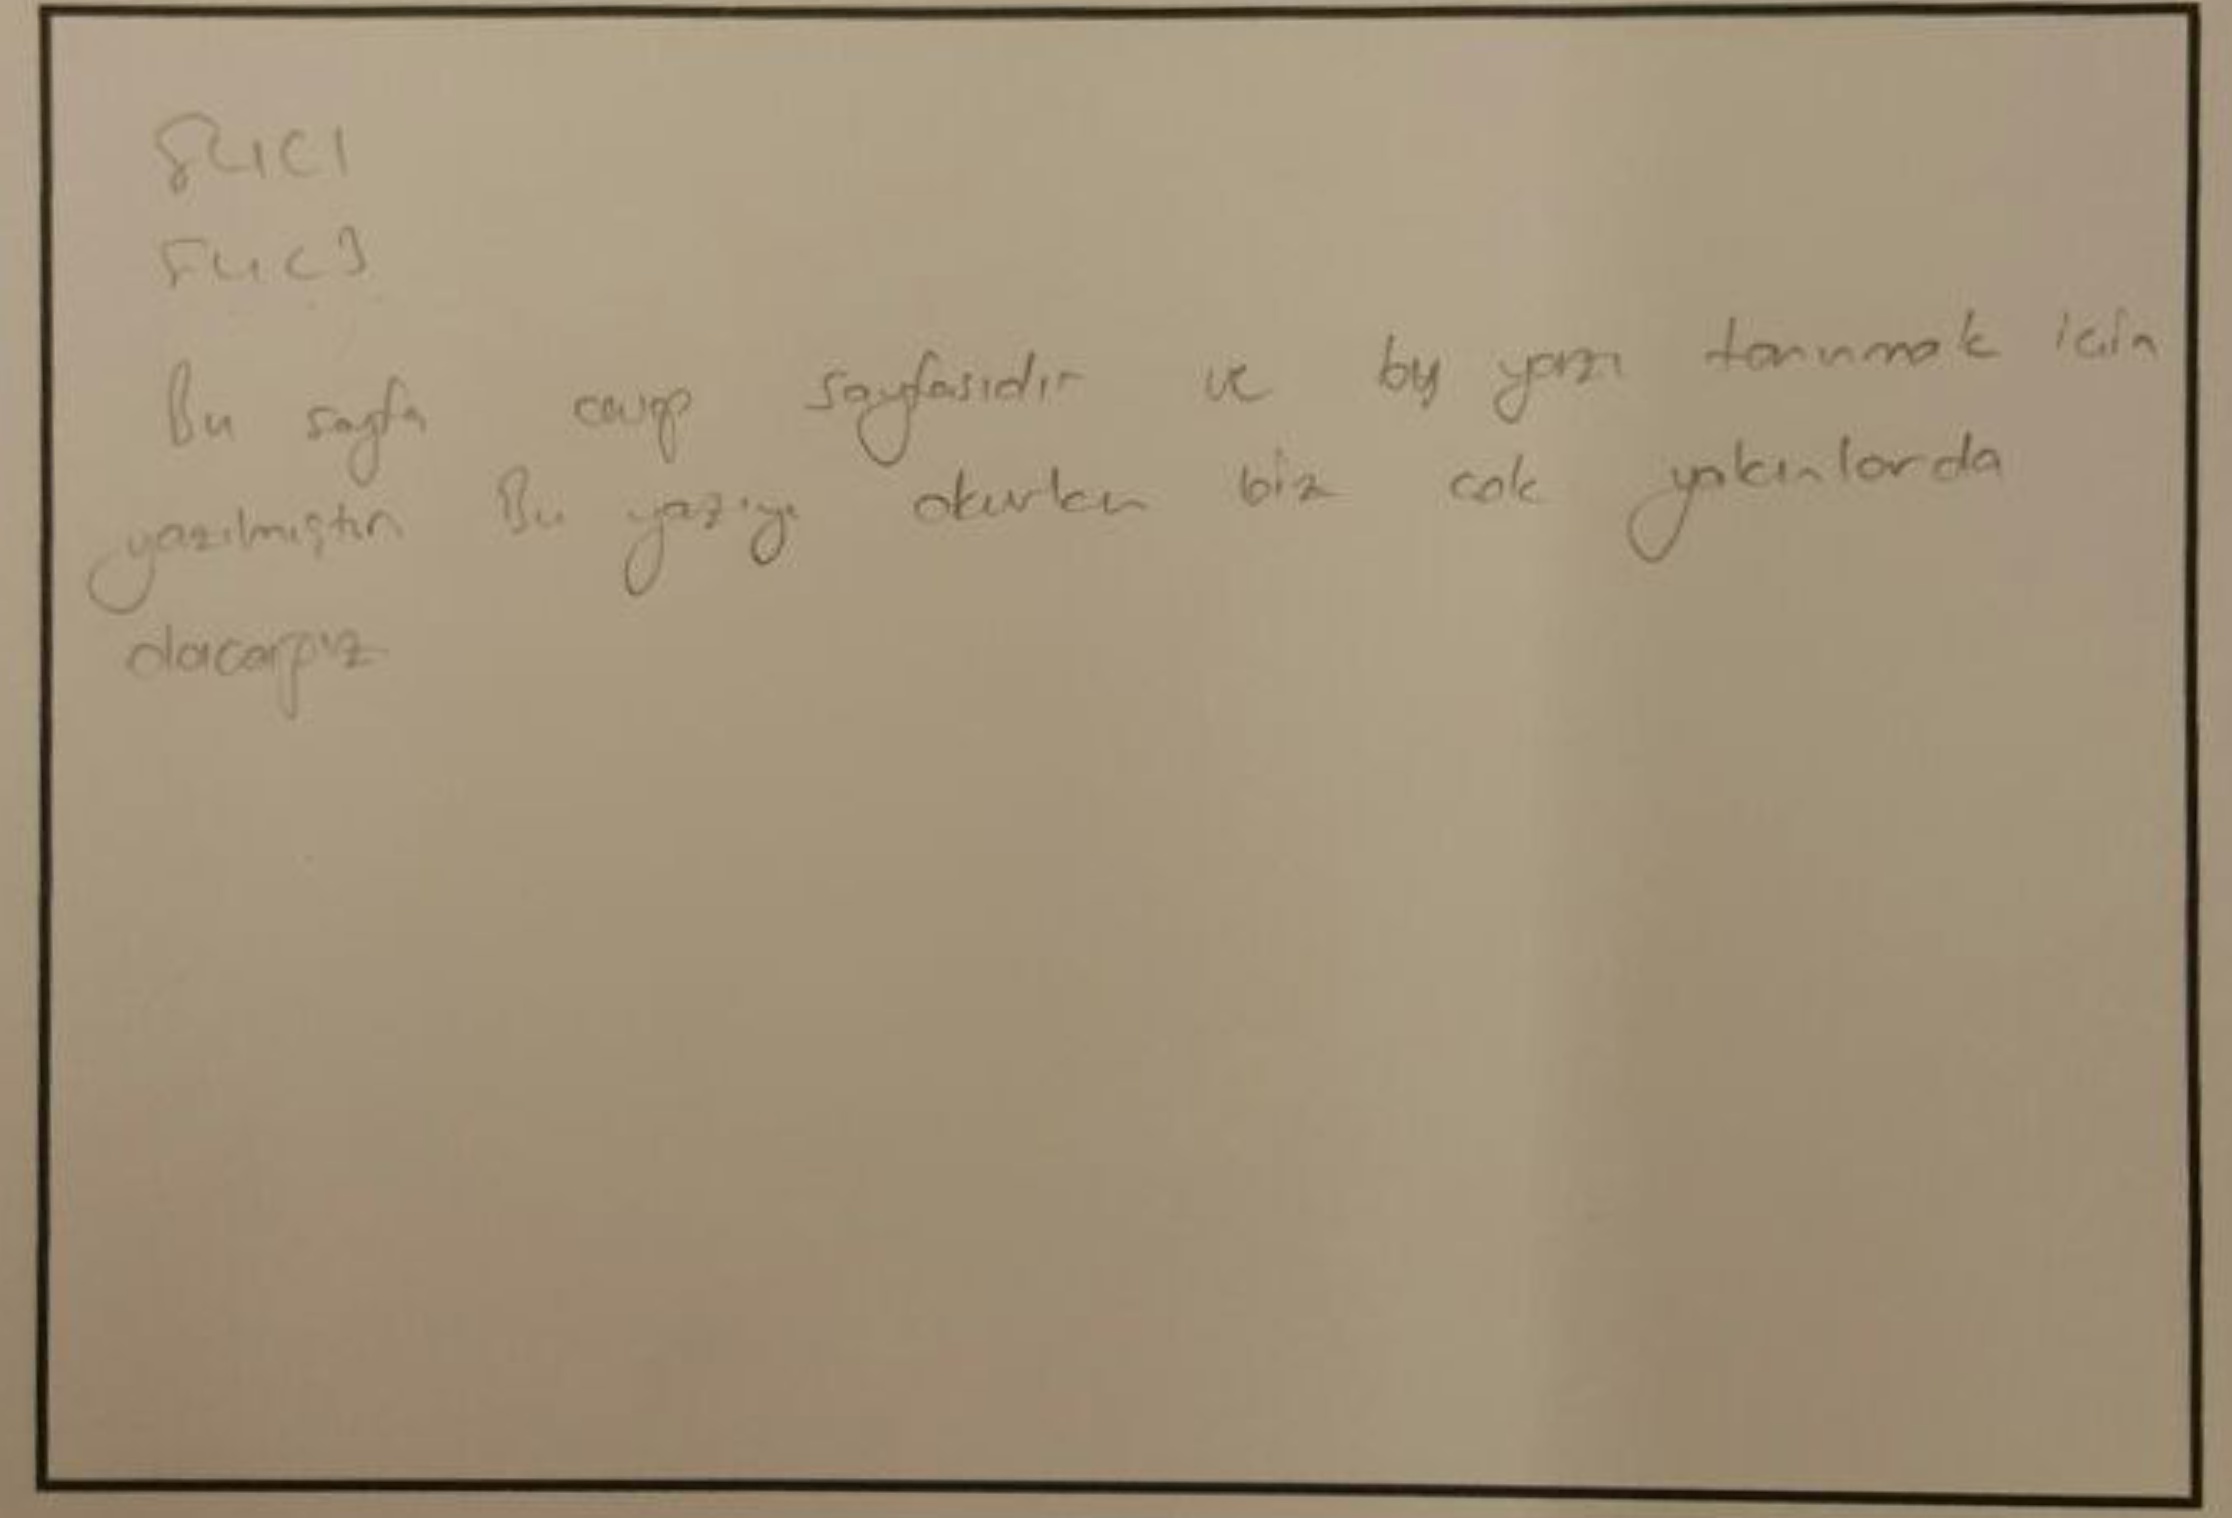 Bu sayfa cevap sayfasıdır ve bu yazı tanınmak icin
yazılmıştır Bu yazıyı okurken biz cok yakınlarda
olacağız